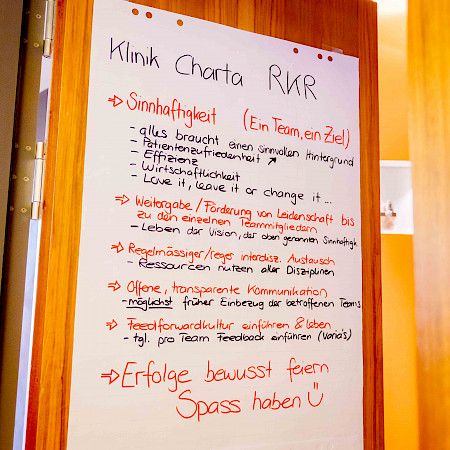 Klinik Charta RKR
⇒ Sinnhaftigkeit (Ein Team, ein Ziel)
- alles braucht einen sinnvollen Hintergrund
- Patientenzufriedenheit ↗
- Effizienz
- Wirtschaftlichkeit
- Love it, leave it or change it ...
⇒ Weitergabe / Förderung von Leidenschaft bis
zu den einzelnen Teammitgliedern
- Leben der Vision, der oben genannten Sinnhaftigk.
⇒ Regelmässiger/reger interdisz. Austausch
- Ressourcen nutzen aller Disziplinen
⇒ Offene, transparente Kommunikation
- möglichst früher Einbezug der betroffenen Teams
⇒ Feedforwardkultur einführen & leben
- tgl. pro Team Feedback einführen (Varia's)
⇒ Erfolge bewusst feiern
Spass haben ☺